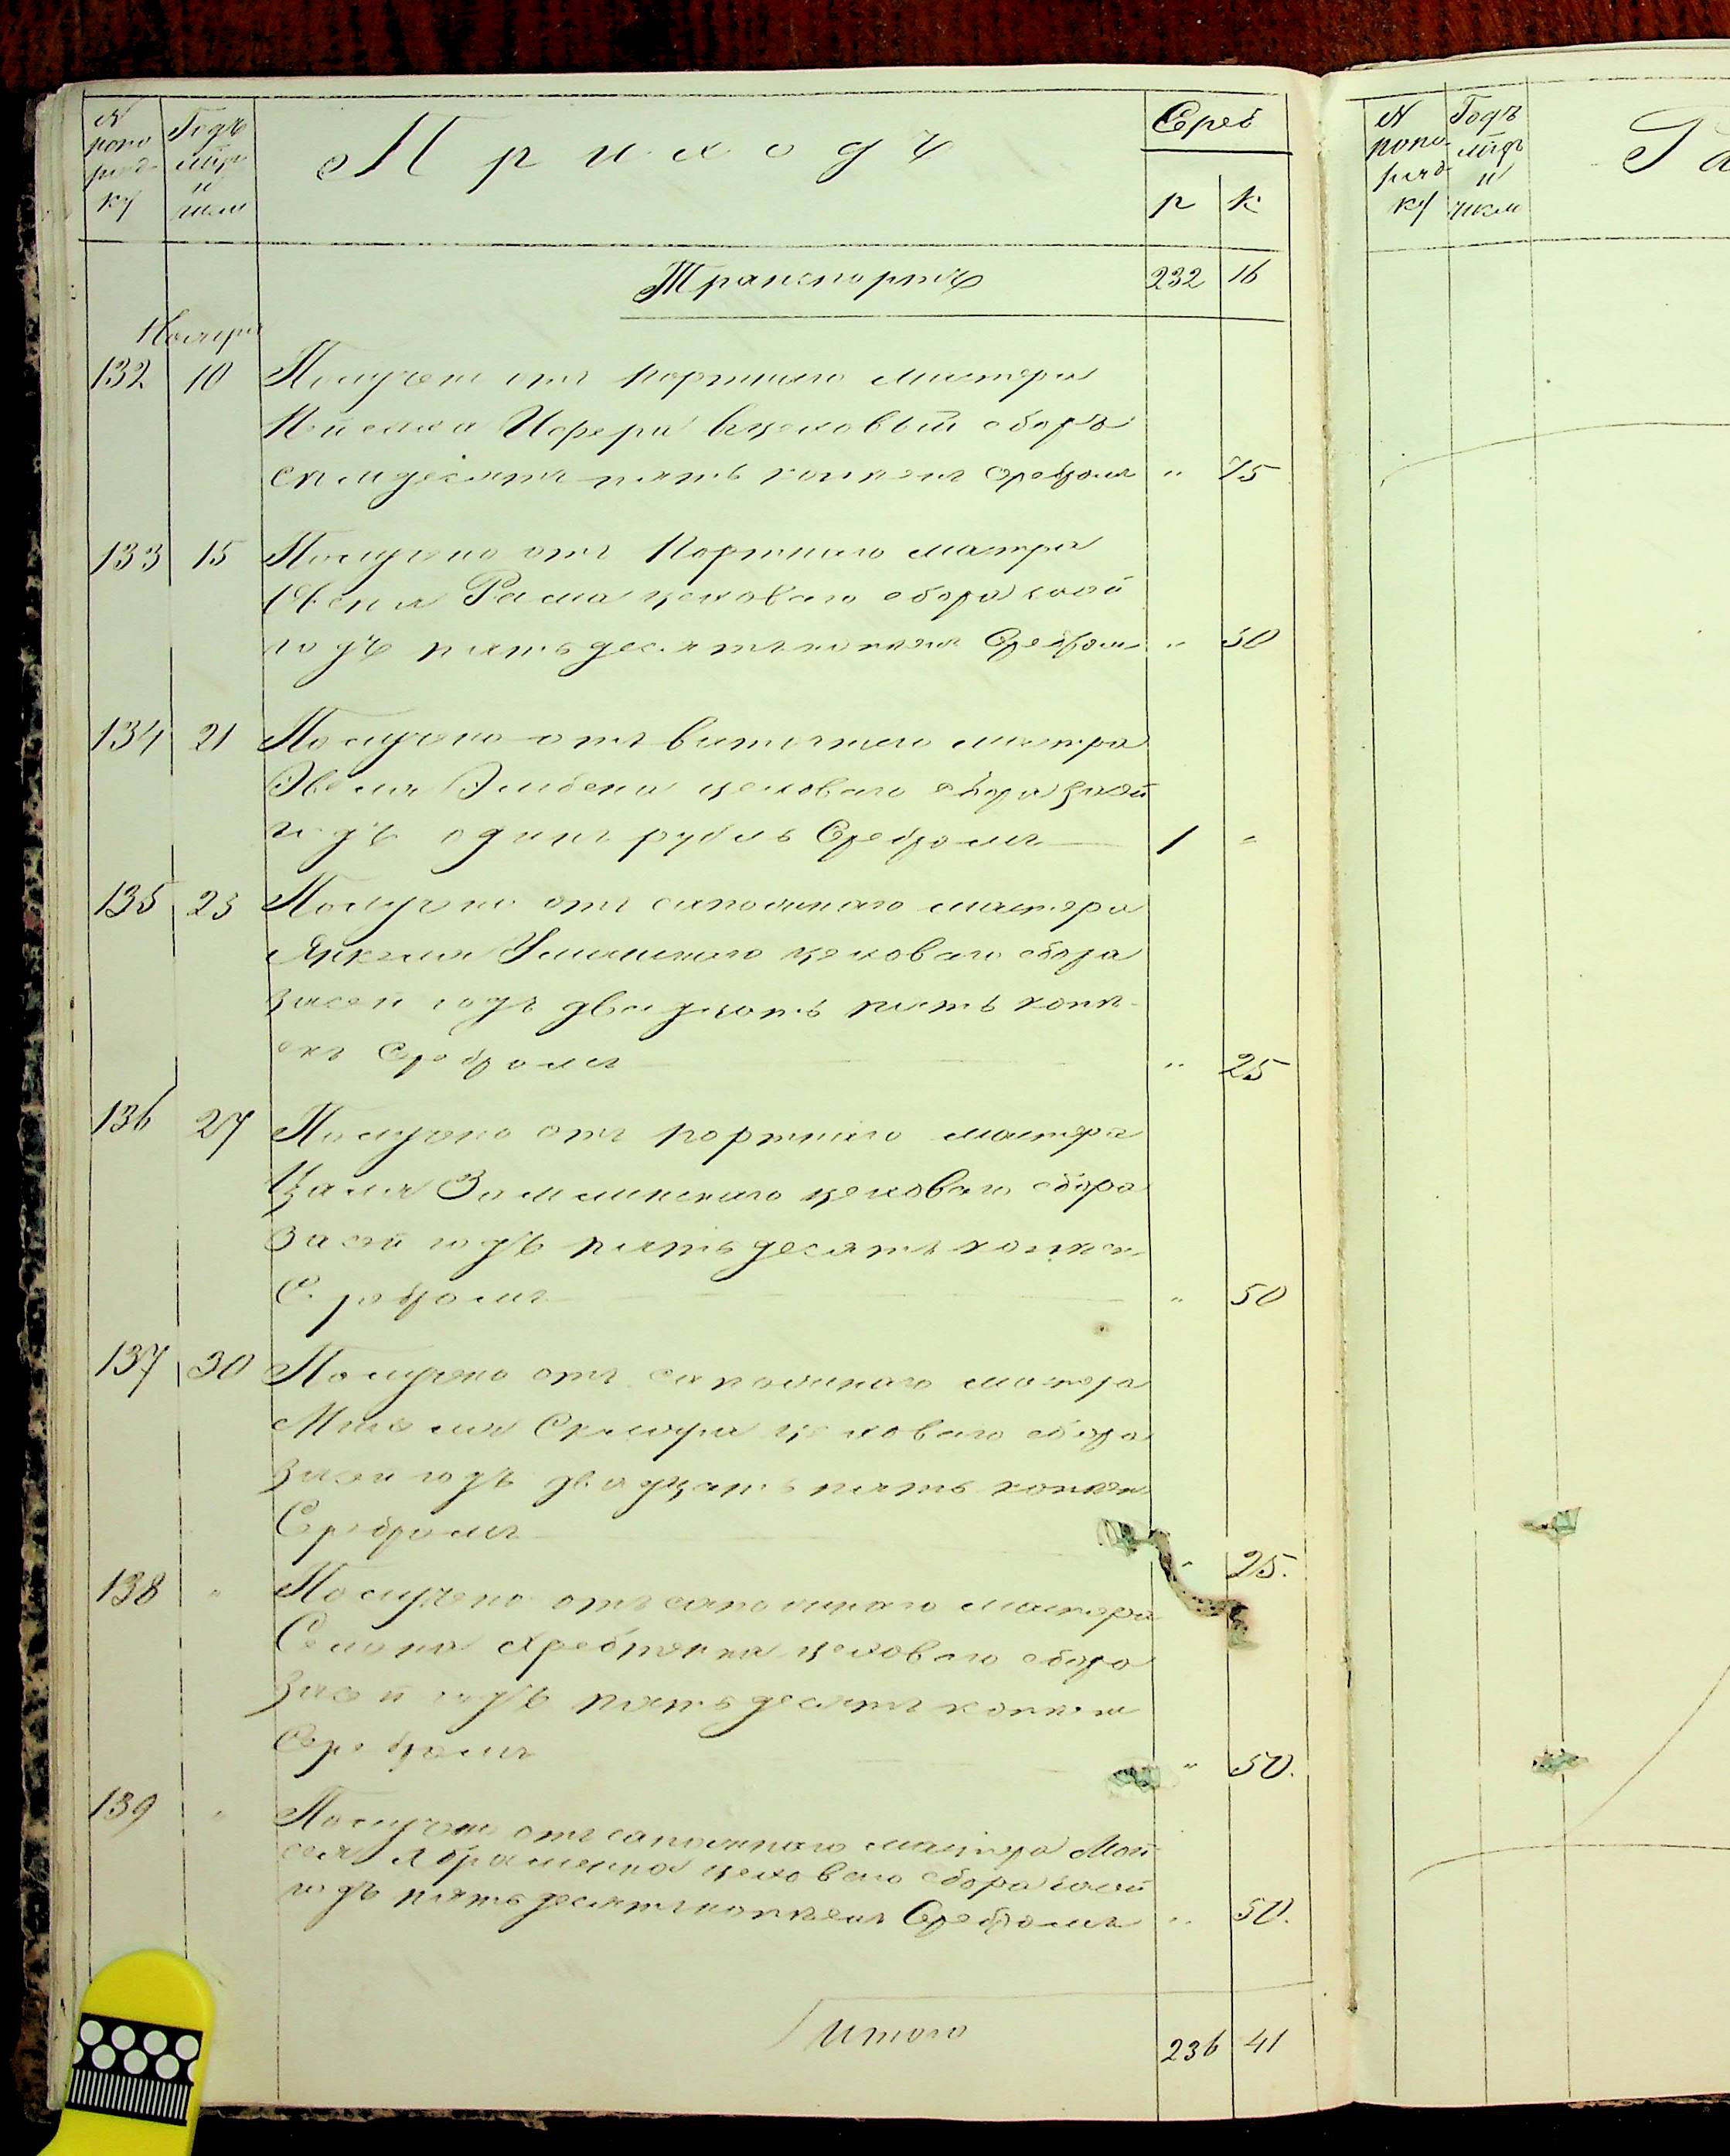 №
попо
ряд
ку
Годъ
мѣс
и
числ
Приходъ
Сереб
р
к
Транспортъ 232 16
Ноября
132 10 Получено отъ портнаго мастера
цеховый сборъ
семдесятъ пять копѣекъ серебромъ " 75
133 15 Получено отъ Портнаго мастера
цеховаго сбора засей
годъ пятьдесятъ копѣекъ Серебромъ " 50
134 21 Получено отъ мастера
цеховаго сбора засей
годъ одинъ рубль Серебромъ 1 "
135 23 Получено отъ сапожнаго мастера
Янкеля Уманскаго цеховаго сбора
засей годъ двадцать пять копѣ-
екъ Серебромъ " 25
136 27 Получено отъ портнаго мастера
цеховаго сбора
засей годъ пятьдесятъ копѣекъ
Серебромъ " 50
137 30 Получено отъ сапожнаго мастера
Скляра цеховаго сбора
засей годъ двадцать пять копѣекъ
Серебромъ " 25.
138 " Получено отъ сапожнаго мастера
цеховаго сбора
засей годъ пятьдесятъ копѣекъ
Серебромъ " 50.
139 " Получено отъ сапожнаго мастера Мой
сея Абраменка цеховаго сбора засей
годъ пятьдесятъ копѣекъ Серебромъ " 50.
Итого 236 41
№
попо-
ряд
ку
Годъ
мѣс
и
числ
Ра